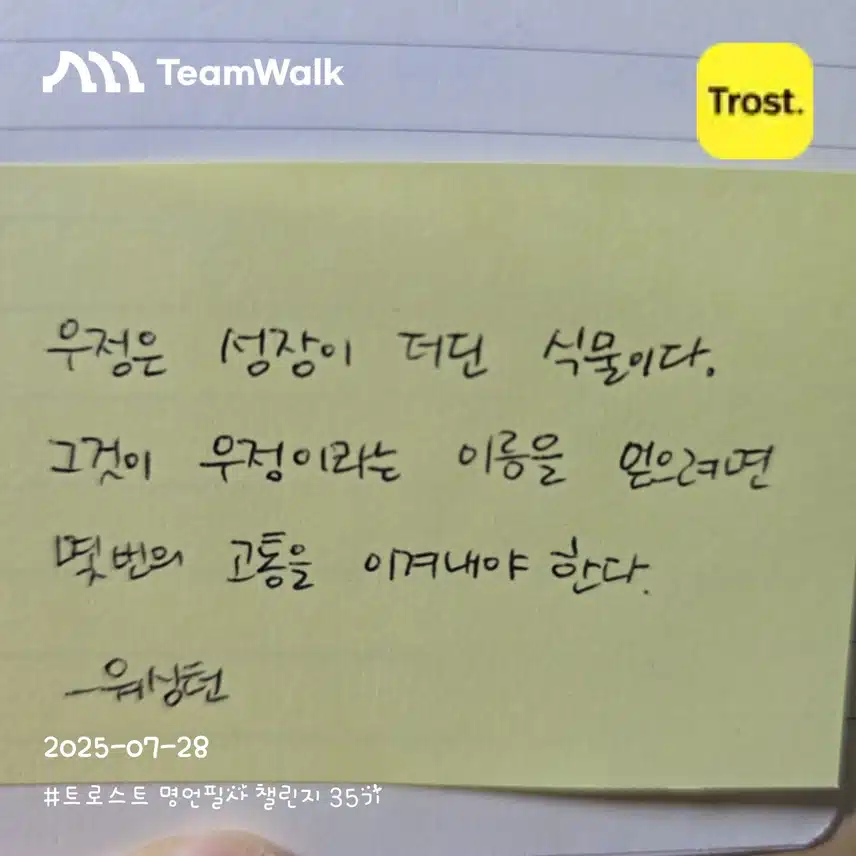 TeamWalk
Trost.
우정은 성장이 더딘 식물이다.
그것이 우정이라는 이름을 얻으려면
몇번의 고통을 이겨내야 한다.
-워싱턴
2025-07-28
#트로스트 명언필사 챌린지 35일차